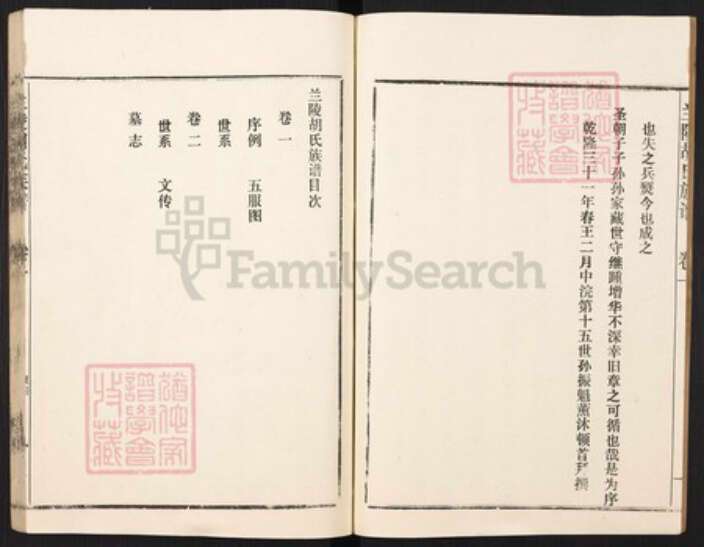 兰陵胡氏族谱 卷一
也失之兵燹今也成之
圣朝于子孙孙家藏世守继踵增华不深幸旧章之可循也哉是为序
乾隆三十一年春王二月中浣第十五世孙振魁薰沐顿首拜撰
兰陵胡氏族谱目次
卷一
序例 五服图
世系
卷二
世系 文传
墓志
FamilySearch
谱学会
收藏